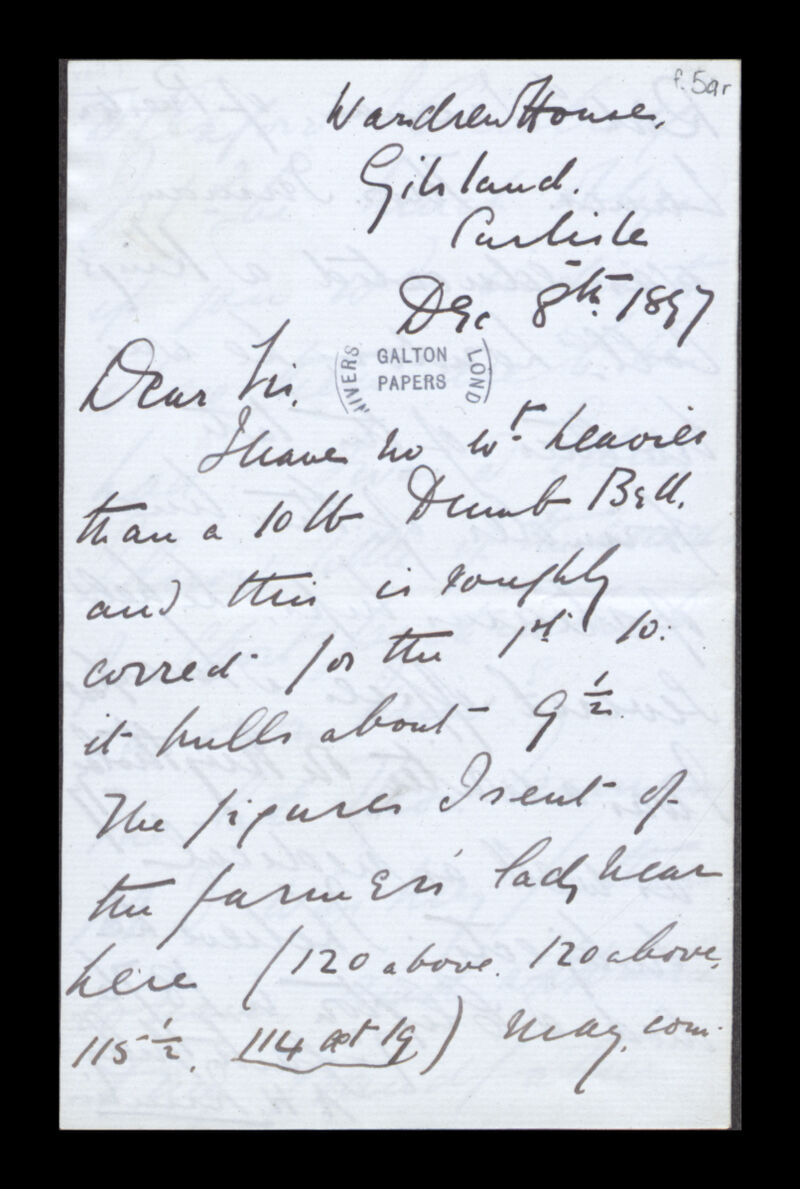 f. 5ar
Wardrew House,
Gilsland.
Carlisle
Dec 8th. 1897
UNIVERS. GALTON PAPERS LOND
Dear Sir.
I have no wt. heavier
than a 10 lb Dumb Bell.
and this is roughly
correct for the 1st 10.
it pulls about 9 1/2.
The figures I sent of
the farmers' lad, near
here (120 above. 120 above.
115 1/2. 114 æt 19) may. com-